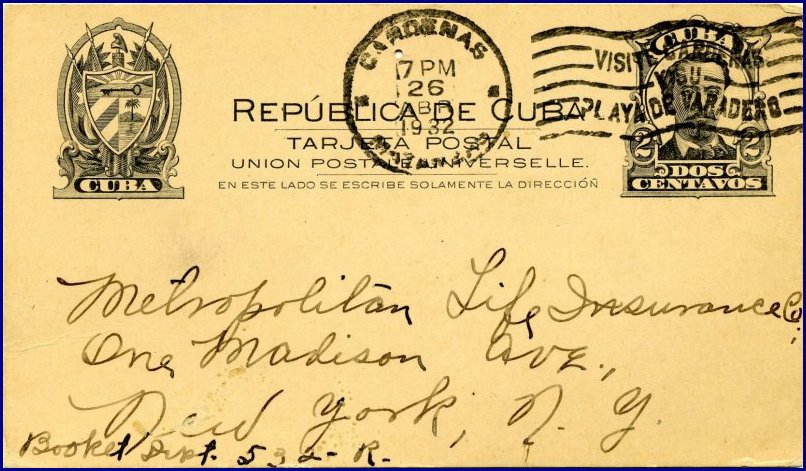 CUBA
CARDENAS
7 PM
26
ABR
1932
MATANZAS
REPÚBLICA DE CUBA
TARJETA POSTAL
UNION POSTAL UNIVERSELLE.
EN ESTE LADO SE ESCRIBE SOLAMENTE LA DIRECCIÓN
CUBA
VISITE CARDENAS
Y SU
PLAYA DE VARADERO
2 2
DOS
CENTAVOS
Metropolitan Life Insurance Co.,
One Madison Ave.,
New York, N. Y.
Booket Dept. 532-R.